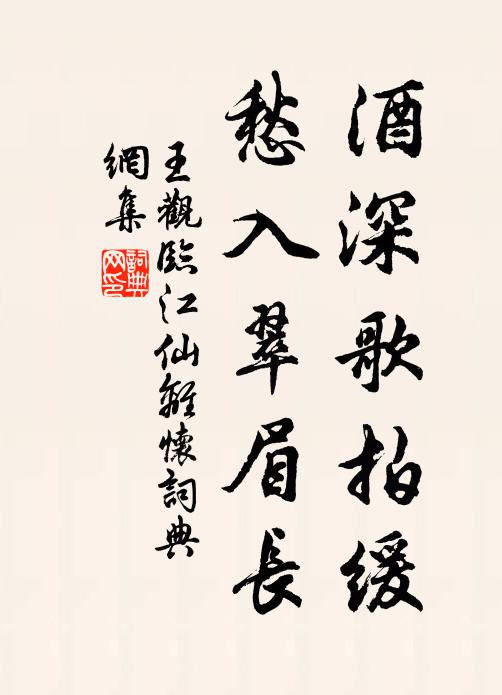 酒深歌拍緩
愁入翠眉長
王觀臨江仙離懷詞典
網集
詞典網印